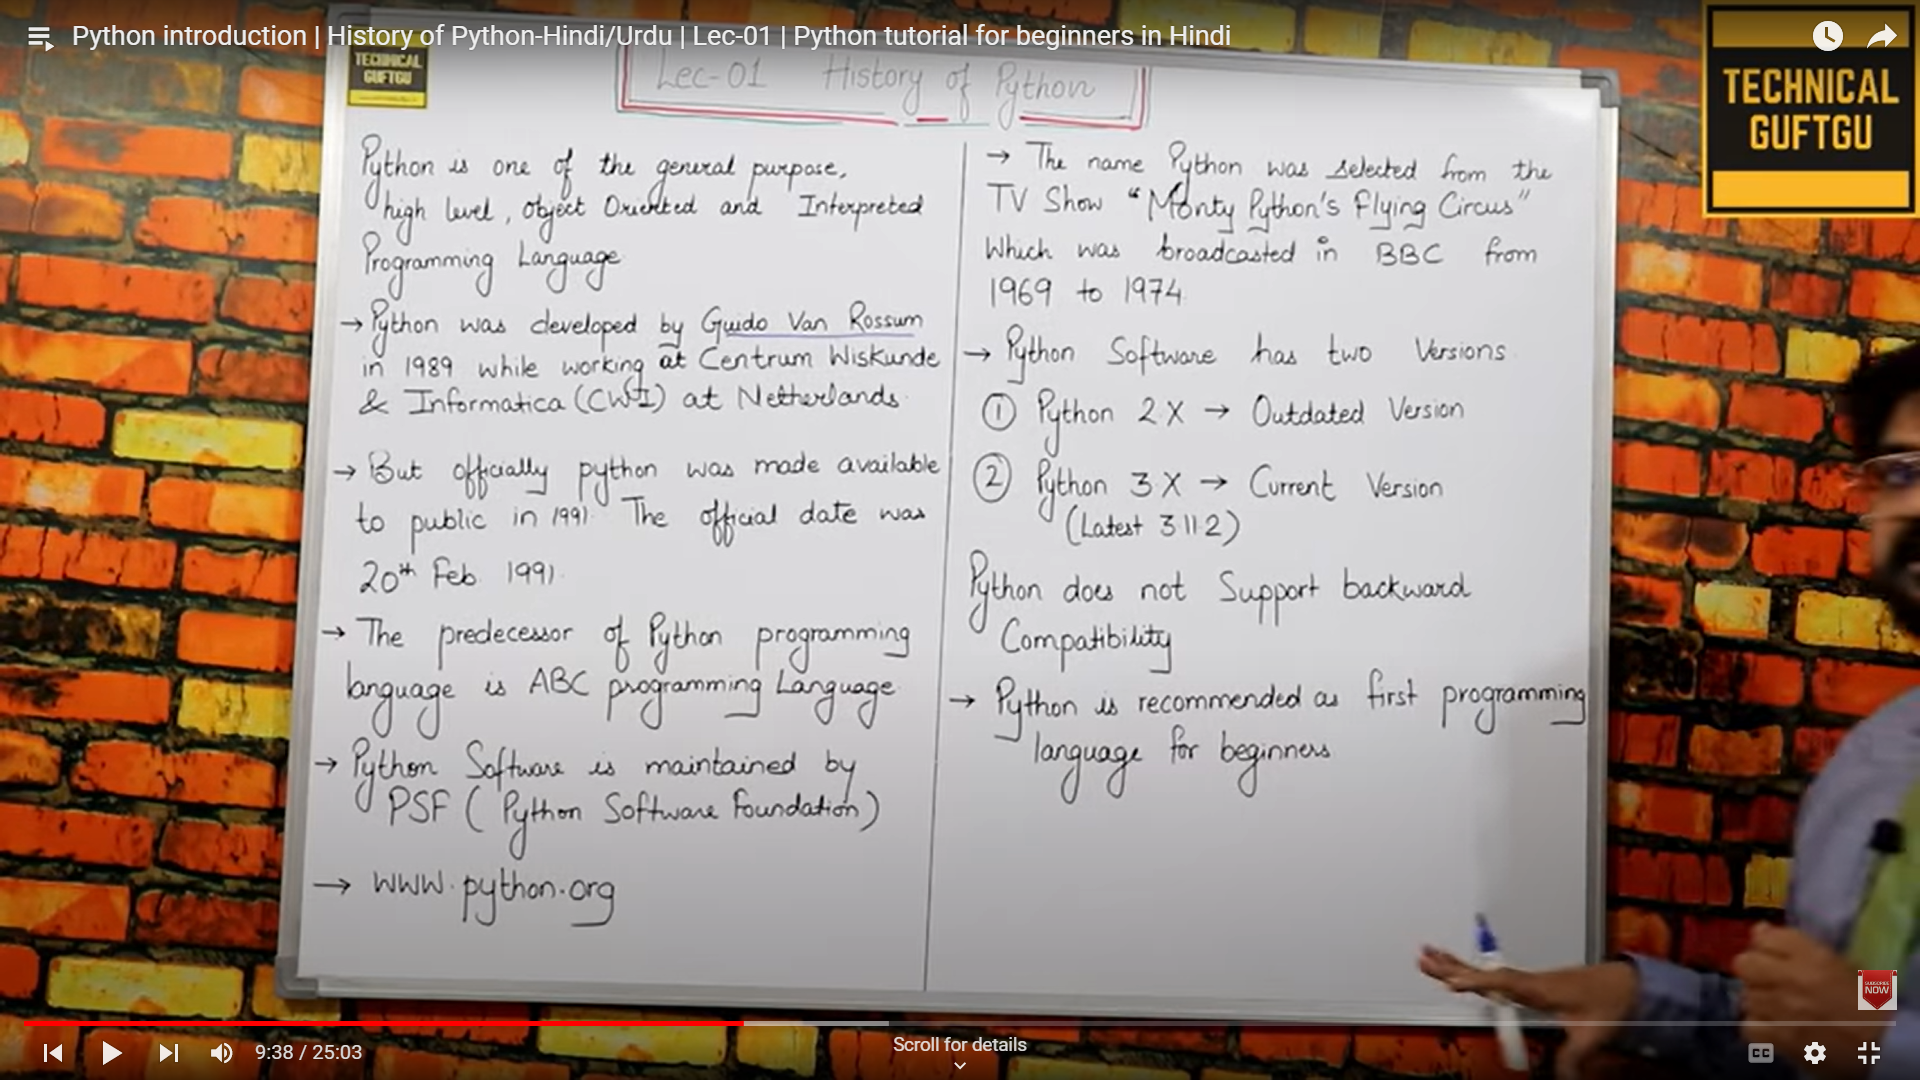 Python introduction | History of Python-Hindi/Urdu | Lec-01 | Python tutorial for beginners in Hindi
TECHNICAL
GUFTGU
TECHNICAL
GUFTGU
Lec-01 History of Python
Python is one of the general purpose,
high level, object Oriented and Interpreted
Programming Language
→ Python was developed by Guido Van Rossum
in 1989 while working at Centrum Wiskunde
& Informatica (CWI) at Netherlands.
→ But officially python was made available
to public in 1991. The official date was
20th Feb 1991.
→ The predecessor of Python programming
language is ABC programming Language.
→ Python Software is maintained by
PSF ( Python Software Foundation)
→ www.python.org
→ The name Python was selected from the
TV Show "Monty Python's Flying Circus"
Which was broadcasted in BBC from
1969 to 1974.
→ Python Software has two Versions
① Python 2.X → Outdated Version
② Python 3.X → Current Version
(Latest 3.11.2)
Python does not Support backward
Compatibility
→ Python is recommended as first programming
language for beginners
SUBSCRIBE
NOW
9:38 / 25:03
Scroll for details
CC